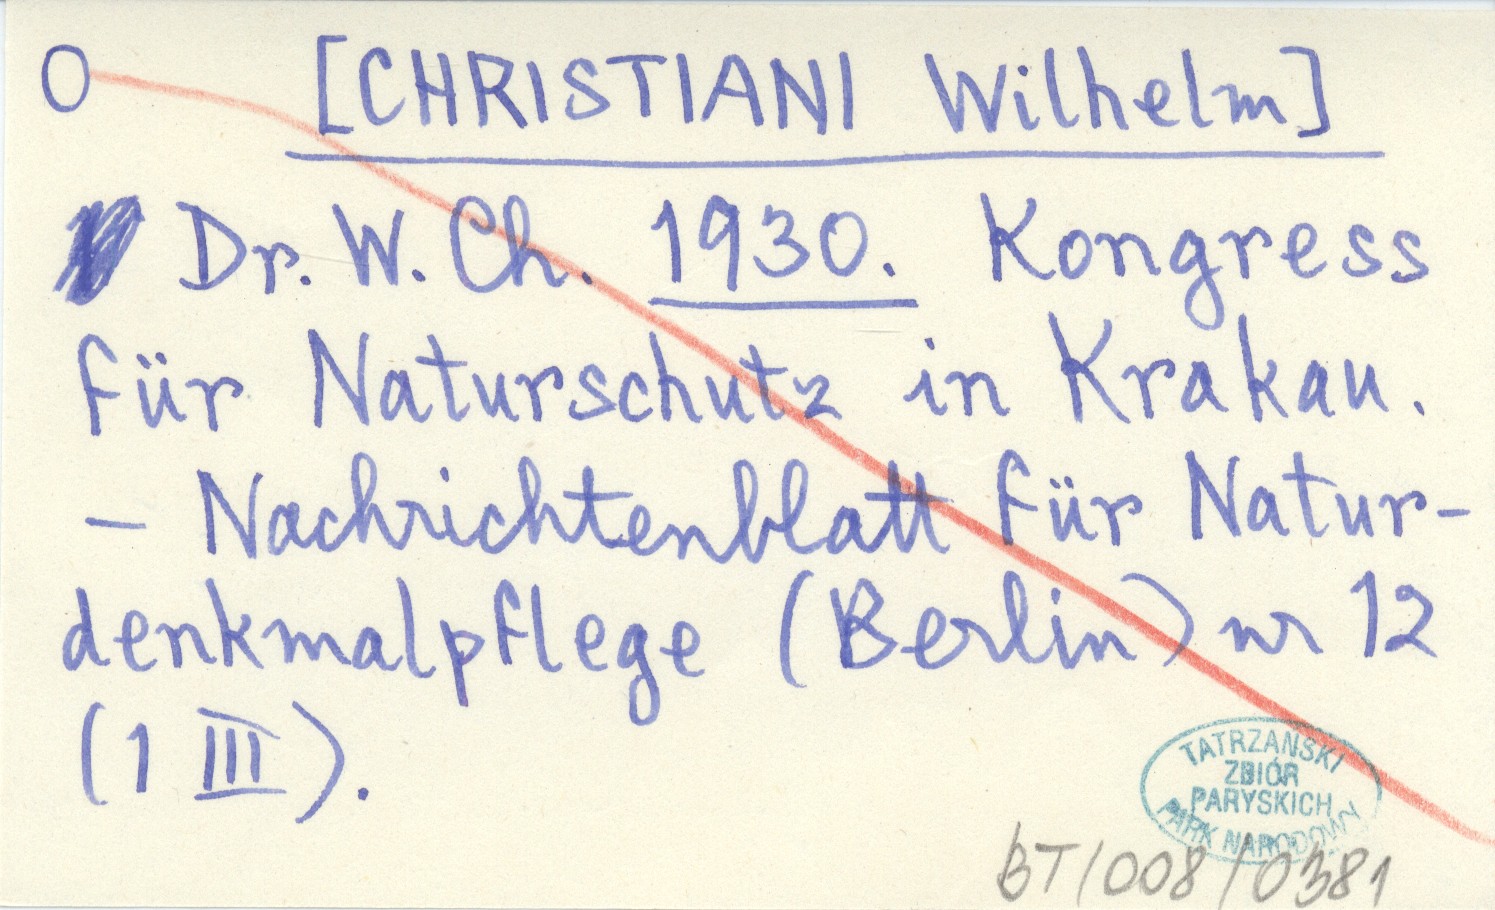 O [CHRISTIANI Wilhelm]
Dr. W. Ch. 1930. Kongress
für Naturschutz in Krakau.
– Nachrichtenblatt für Natur-
denkmalpflege (Berlin) nr 12
(1 III).
TATRZAŃSKI
ZBIÓR
PARYSKICH
PARK NARODOWY
BT/008/0381